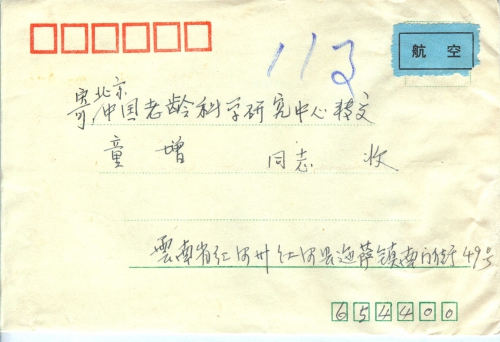 113
航空
寄北京
中国老龄科学研究中心转交
童增 同志 收
雲南省红河州红河县迤萨镇南门街49号
654400